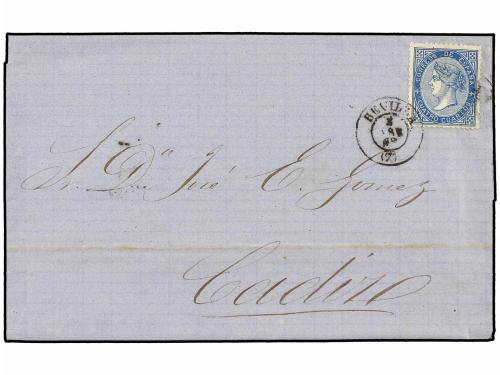 CORREOS DE ESPAÑA
CUATRO CUARTOS
SEVILLA
(7)
Sr. Dn José E. Gomez
Cadiz